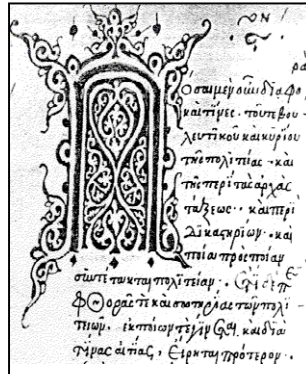 Πόσαι μὲν οὖν διαφοραὶ
καὶ τίνες· τοῦ τε βου
λευτικοῦ καὶ κυρίου
τῆς πολιτείας· καὶ
τῆς περὶ τὰς ἀρχὰς
τάξεως· καὶ περὶ
δικαστηρίων· καὶ
ποία πρὸς ποίαν
συντέτακται πολιτείαν· ἔτι δὲ περὶ
φθορᾶς τε καὶ σωτηρίας τῶν πολι
τειῶν. ἐκ ποίων τε γίνεται καὶ διὰ
τίνας αἰτίας, εἴρηται πρότερον·